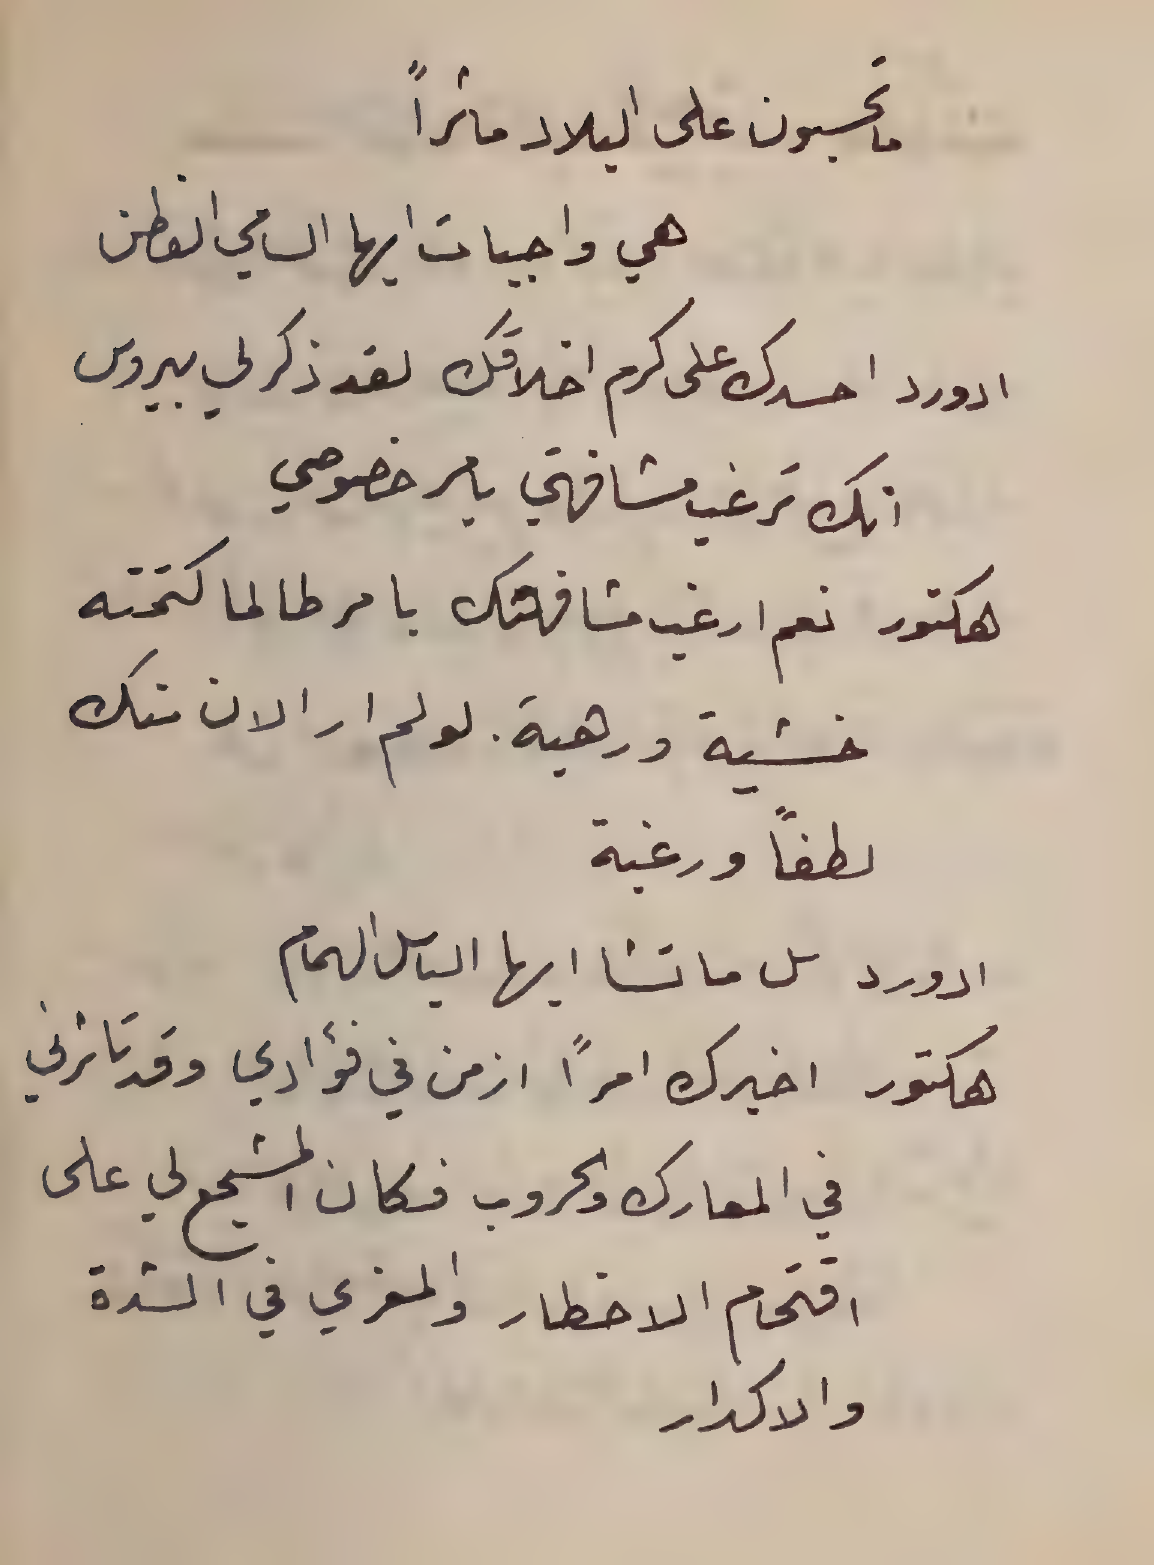 ما تحسبون على البلاد مآثراً
هي واجبات ايها السامي الفطن
ادورد احسدك على كرم اخلاقك لقد ذكر لي بيروس
انك ترغب مشافهتي بامر خصوصي
هكتور نعم ارغب مشافهتك بامر طالما كتمته
خشية ورهبة. لو لم ار الان منك
لطفاً ورغبة
ادورد سل ما تشا ايها الباسل الهمام
هكتور اخبرك امراً ازمن في فؤادي وقد تاثرني
في المعارك والحروب فكان المشجع لي على
اقتحام الاخطار والمغري في الشدة
والاكدار